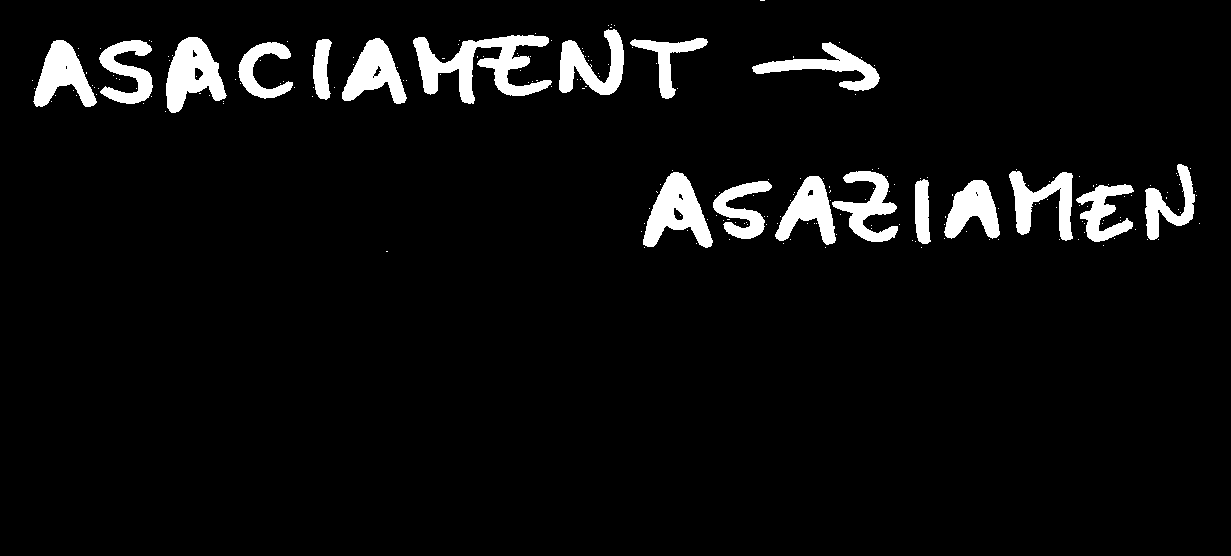 ASACIAMENT →
ASAZIAMEN